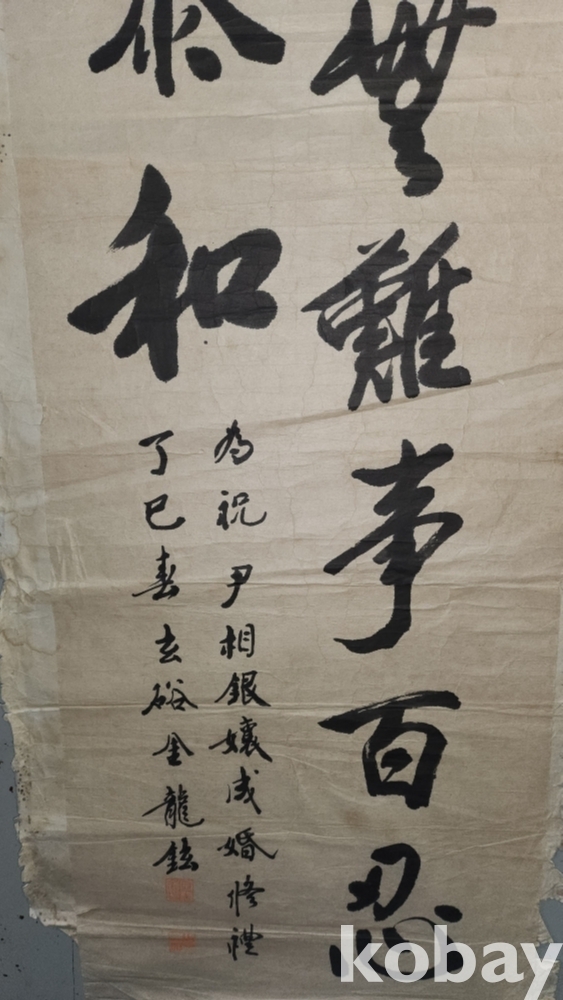 無難事百忍
泰和
為祝尹相銀孃成婚
丁巳春玄硲金龍鉉
kobay